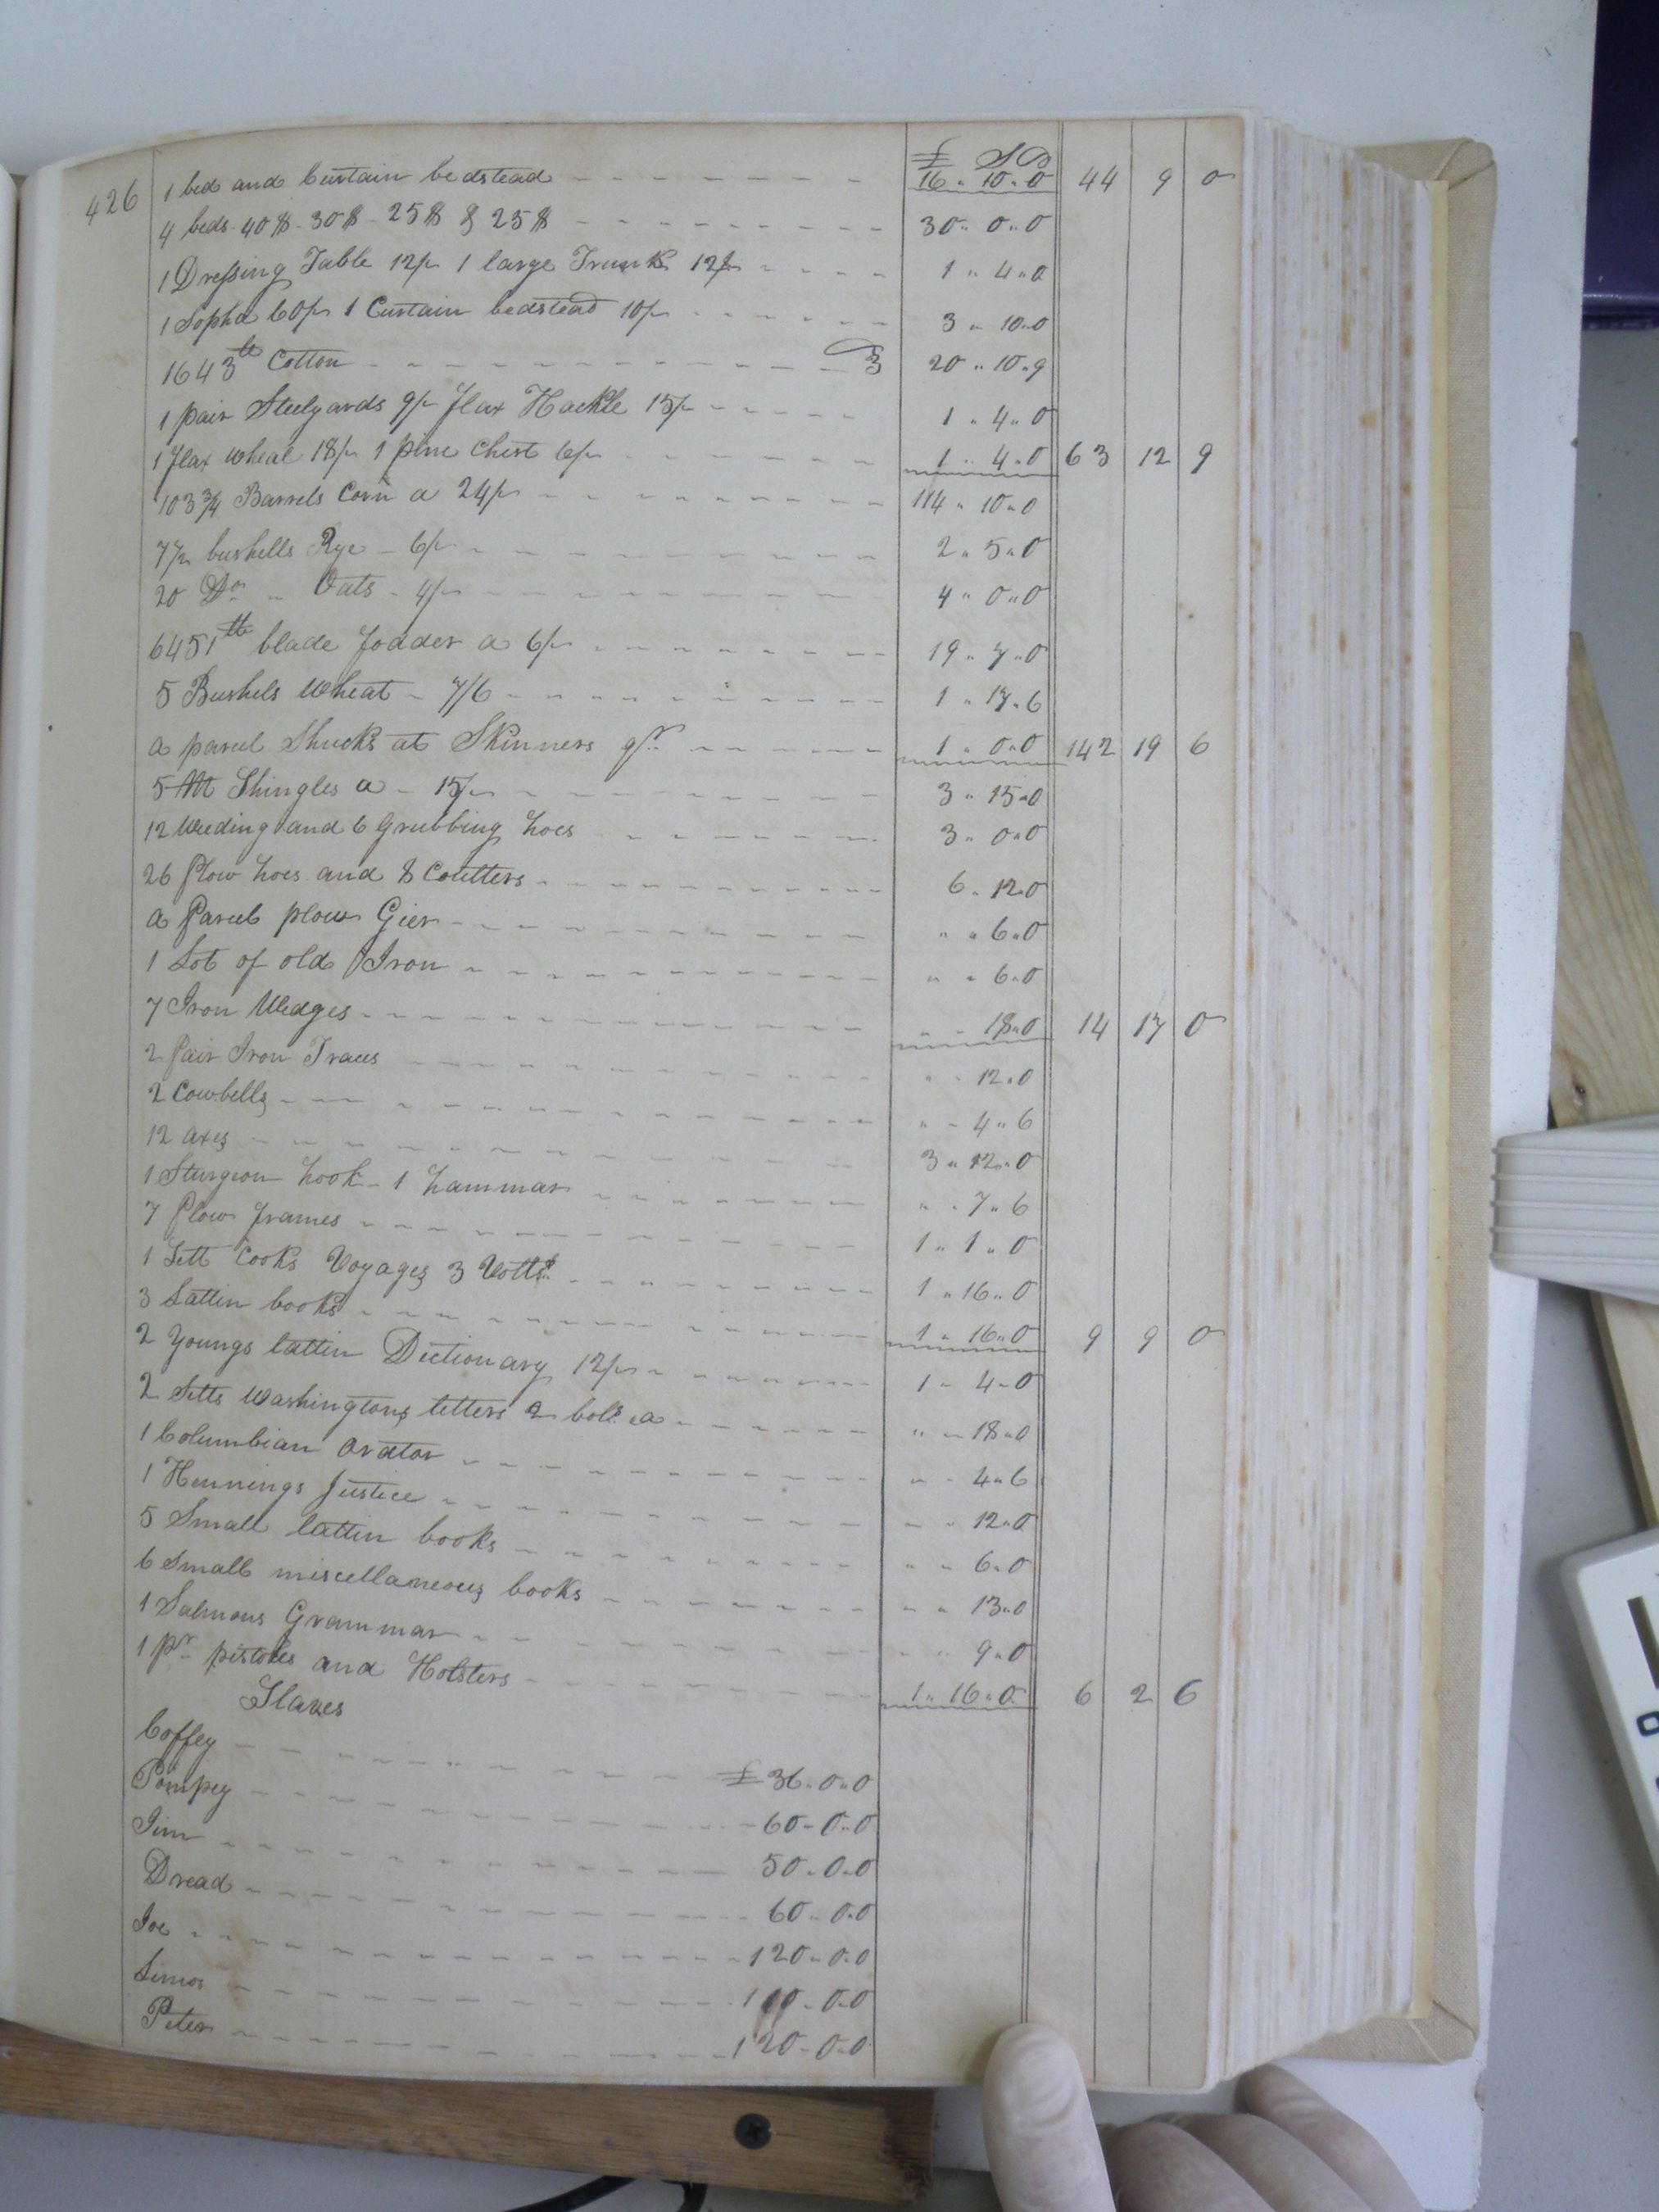 £ S D
426 1 bed and Curtain bedstead 16 " 10 " 0 44 9 0
4 beds 40$ - 30$ - 25$ & 25$ 30 " 0 " 0
1 Dressing Table 12/ 1 large Trunk 12/ 1 " 4 " 0
1 Sopha 60/ 1 Curtain bedstead 10/ 3 " 10 " 0
1643 lb Cotton 3 20 " 10 " 9
1 pair Steelyards 9/ flax Hackle 15/ 1 " 4 " 0
1 flax wheal 18/ 1 pine Chest 6/ 1 " 4 " 0 63 12 9
103 3/4 Barrels Corn a 24/ 114 " 10 " 0
7 1/2 bushells Rye - 6/ 2 " 5 " 0
20 Do " Oats - 4/ 4 " 0 " 0
6451 lb blade fodder a 6/ 19 " 7 " 0
5 Bushels Wheat - 7/6 1 " 17 " 6
a parcel Shucks at Skinners qr 1 " 0 " 0 142 19 6
5 M Shingles a - 15/ 3 " 15 " 0
12 Weeding and 6 Grubbing hoes 3 " 0 " 0
26 Plow hoes and 8 Coultters 6 " 12 " 0
a Parcel plow Gier " " 6 " 0
1 Lot of old Iron " " 6 " 0
7 Iron Wedges " " 18 " 0 14 17 0
2 Pair Iron Traces " " 12 " 0
2 Cowbells " " 4 " 6
12 axes 3 " 12 " 0
1 Sturgeon hook - 1 hammar " " 7 " 6
7 Plow frames 1 " 1 " 0
1 Sett Cooks Voyages 3 Volls 1 " 16 " 0
3 Lattin books 1 " 16 " 0 9 9 0
2 Youngs lattin Dictionary 12/ 1 " 4 " 0
2 Setts Washingtons letters 2 vols a " " 18 " 0
1 Columbian Orator " " 4 " 6
1 Hennings Justice " " 12 " 0
5 Small lattin books " " 6 " 0
6 Small miscellaneous books " " 13 " 0
1 Salmons Grammar " " 9 " 0
1 pr pistoles and Holsters 1 " 16 " 0 6 2 6
Slaves
Coffey £ 36 " 0 " 0
Pompey 60 " 0 " 0
Jim 50 " 0 " 0
Dread 60 " 0 " 0
Joe 120 " 0 " 0
Simon 110 " 0 " 0
Peter 120 " 0 " 0